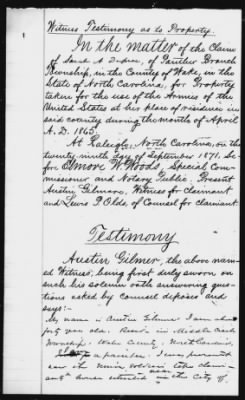 Witness Testimony as to Property.
In the matter of the Claim
of A Dupree, of Panther Branch
Township, in the County of Wake, in the
State of North Carolina, for Property
taken for the use of the Armies of the
United States at his place of residence in
said county during the month of April
A. D. 1865.
At Raleigh, North Carolina, on the
twenty ninth day of September 1871. Be-
fore Elmore W. Woods, Special Com-
missioner and Notary Public. Present
Austin Gilmore, Witness for Claimant
and Lewis P. Olds of Counsel for claimant.
Testimony
Austin Gilmer, the above nam
ed Witness, being first duly sworn on
such his solemn oath answering ques-
tions asked by counsel deposes and
says:-
My name is Austin Gilmer I am
forty years old. Reside in Middle Creek
Township. Wake County. North Carolina.
a farmer. I was present
saw the soldiers take claim-
ant's the City of